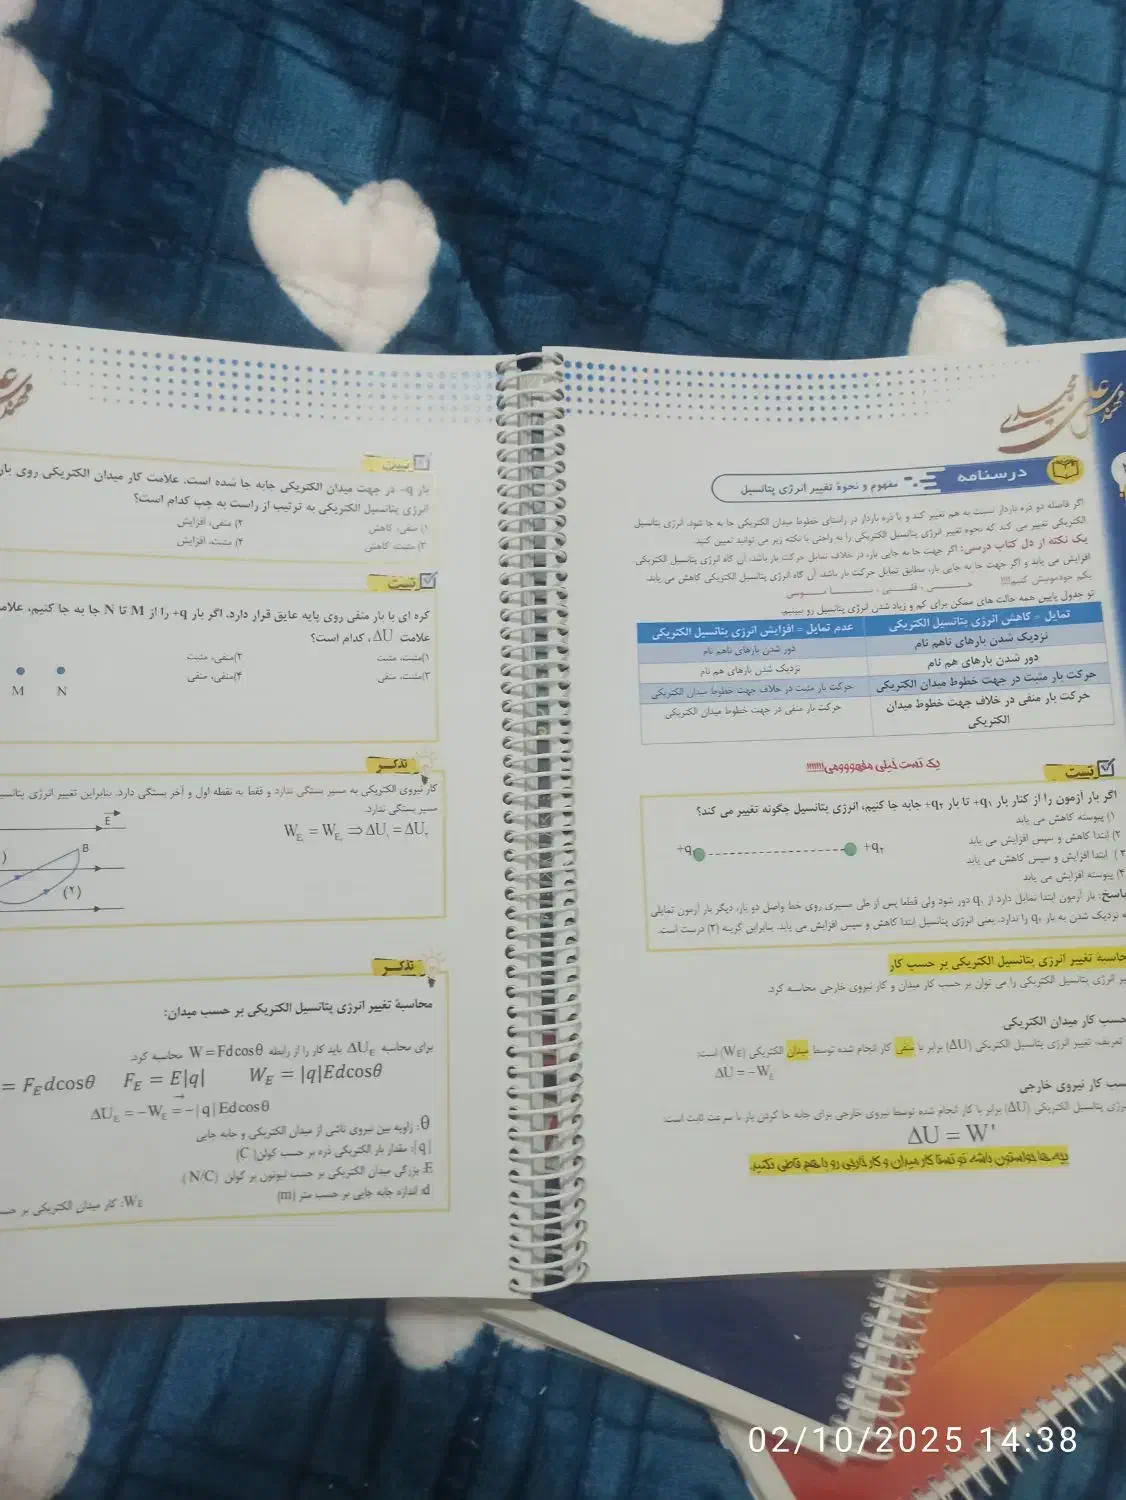 مهندس علی مجیدی
درسنامه
مفهوم و نحوۀ تغییر انرژی پتانسیل
اگر فاصله دو ذره باردار نسبت به هم تغییر کند و یا ذره باردار در راستای خطوط میدان الکتریکی جا به جا شود، انرژی پتانسیل
الکتریکی تغییر می کند که نحوه تغییر انرژی پتانسیل الکتریکی را به راحتی با نکته زیر می توانید تعیین کنید.
یک نکته از دل کتاب درسی: اگر جهت جا به جایی بار، در خلاف تمایل حرکت بار باشد، آن گاه انرژی پتانسیل الکتریکی
افزایش می یابد و اگر جهت جا به جایی بار، مطابق تمایل حرکت بار باشد، آن گاه انرژی پتانسیل الکتریکی کاهش می یابد.
یکم خودمونیش کنیم!!!!
تو جدول پایین همه حالت های ممکن برای کم و زیاد شدن انرژی پتانسیل رو ببینیم.
تمایل = کاهش انرژی پتانسیل الکتریکی
عدم تمایل = افزایش انرژی پتانسیل الکتریکی
نزدیک شدن بارهای ناهم نام
دور شدن بارهای ناهم نام
دور شدن بارهای هم نام
نزدیک شدن بارهای هم نام
حرکت بار مثبت در جهت خطوط میدان الکتریکی
حرکت بار مثبت در خلاف جهت خطوط میدان الکتریکی
حرکت بار منفی در خلاف جهت خطوط میدان
الکتریکی
حرکت بار منفی در جهت خطوط میدان الکتریکی
تست
یک تست خیلی مفهوووومی!!!!!!!
اگر بار آزمون را از کنار بار +q۱ تا بار +q۲ جابه جا کنیم، انرژی پتانسیل چگونه تغییر می کند؟
۱) پیوسته کاهش می یابد
۲) ابتدا کاهش و سپس افزایش می یابد
۳) ابتدا افزایش و سپس کاهش می یابد
۴) پیوسته افزایش می یابد
+q۱
+q۲
پاسخ: بار آزمون ابتدا تمایل دارد از q۱ دور شود ولی قطعا پس از طی مسیری روی خط واصل دو بار، دیگر بار آزمون تمایلی
به نزدیک شدن به بار q۲ را ندارد. یعنی انرژی پتانسیل ابتدا کاهش و سپس افزایش می یابد. بنابراین گزینه (۲) درست است.
محاسبۀ تغییر انرژی پتانسیل الکتریکی بر حسب کار
انرژی پتانسیل الکتریکی را می توان بر حسب کار میدان و کار نیروی خارجی محاسبه کرد.
حسب کار میدان الکتریکی
تعریف، تغییر انرژی پتانسیل الکتریکی (ΔU) برابر با منفی کار انجام شده توسط میدان الکتریکی (WE) است:
ΔU = −WE
حسب کار نیروی خارجی
انرژی پتانسیل الکتریکی (ΔU) برابر با کار انجام شده توسط نیروی خارجی برای جابه جا کردن بار با سرعت ثابت است:
ΔU = W'
بچه ها حواستون باشه تو تستا کار میدان و کار خارجی رو با هم قاطی نکنید.
تست
بار −q در جهت میدان الکتریکی جابه جا شده است. علامت کار میدان الکتریکی روی بار
انرژی پتانسیل الکتریکی به ترتیب از راست به چپ کدام است؟
۱) منفی، کاهش
۲) منفی، افزایش
۳) مثبت، کاهش
۴) مثبت، افزایش
تست
کره ای با بار منفی روی پایه عایق قرار دارد. اگر بار +q را از M تا N جا به جا کنیم، علامت
علامت ΔU، کدام است؟
۱)مثبت، مثبت
۲)منفی، مثبت
۳)مثبت، منفی
۴)منفی، منفی
M
N
تذکر
کار نیروی الکتریکی به مسیر بستگی ندارد و فقط به نقطه اول و آخر بستگی دارد. بنابراین تغییر انرژی پتانسیل
مسیر بستگی ندارد.
WE۱ = WE۲ ⇒ ΔU۱ = ΔU۲
E
B
(۲)
تذکر
محاسبۀ تغییر انرژی پتانسیل الکتریکی بر حسب میدان:
برای محاسبه ΔUE باید کار را از رابطه W = Fdcosθ محاسبه کرد.
= FEdcosθ FE = E|q| WE = |q|Edcosθ
ΔUE = −WE = −|q|Edcosθ
θ: زاویه بین نیروی ناشی از میدان الکتریکی و جابه جایی
|q|: مقدار بار الکتریکی ذره بر حسب کولن( C)
E: بزرگی میدان الکتریکی بر حسب نیوتون بر کولن (N/C)
d: اندازه جابه جایی بر حسب متر (m)
WE: کار میدان الکتریکی بر
02/10/2025 14:38